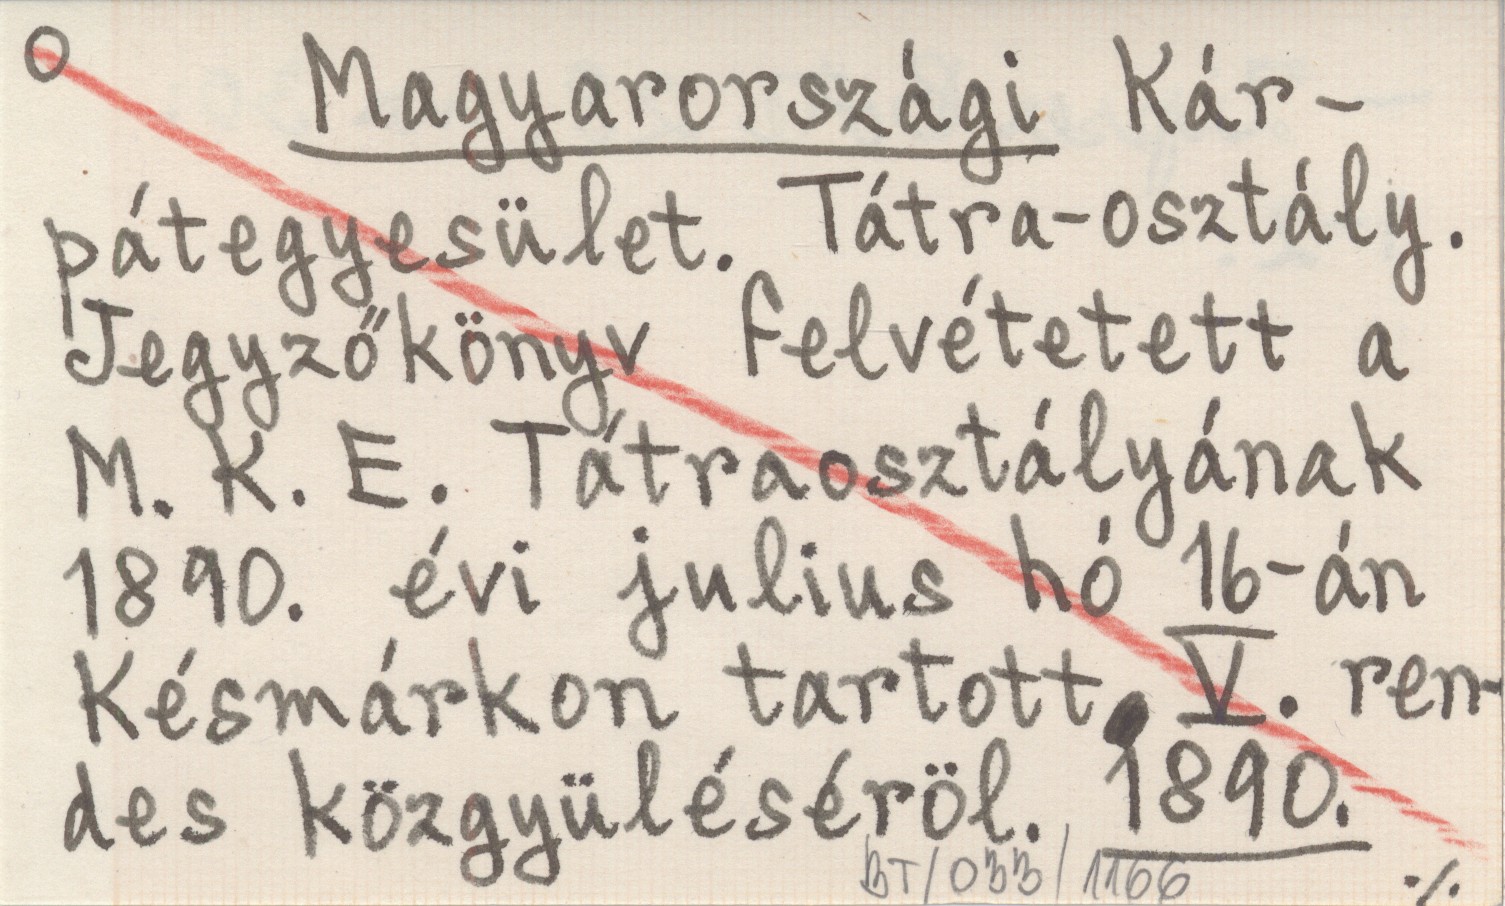 O
Magyarországi Kár-
pátegyesület. Tátra-osztály.
Jegyzőkönyv felvétetett a
M. K. E. Tátraosztályának
1890. évi julius hó 16-án
Késmárkon tartott V. ren-
des közgyüléséröl. 1890.
BT/OBB/1166
./.